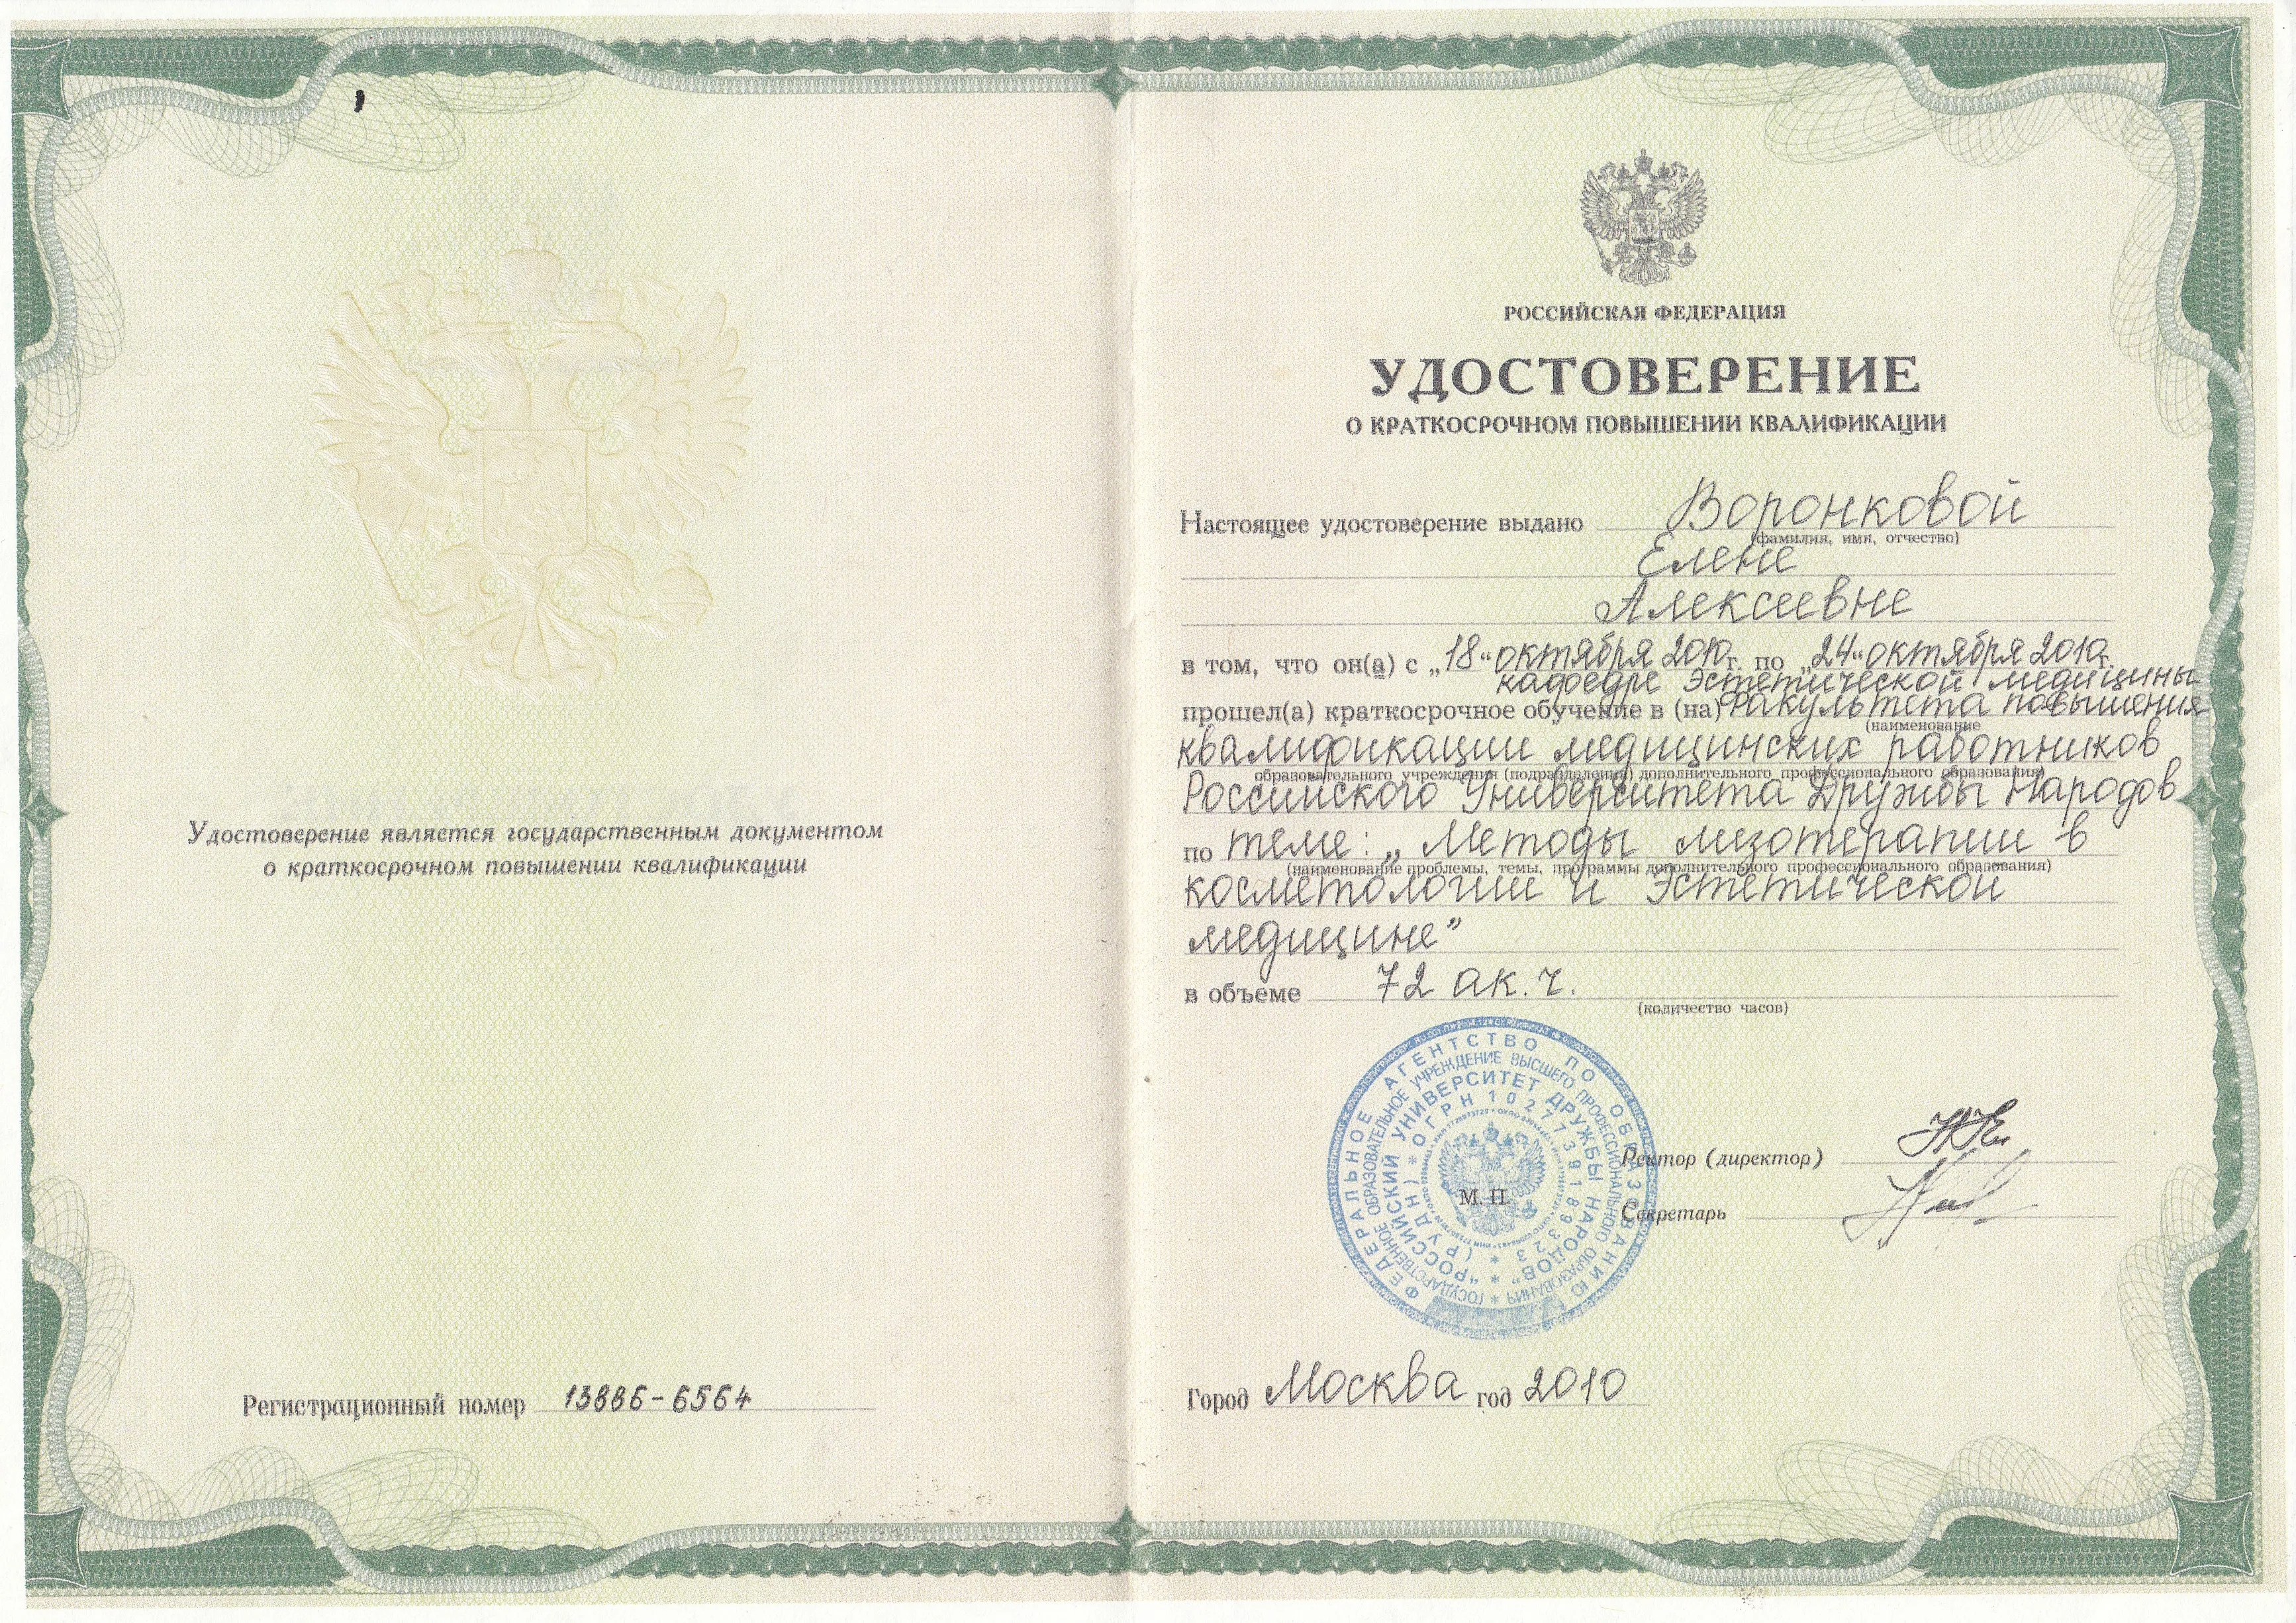 Удостоверение является государственным документом
о краткосрочном повышении квалификации
Регистрационный номер 13886-6564
РОССИЙСКАЯ ФЕДЕРАЦИЯ
УДОСТОВЕРЕНИЕ
О КРАТКОСРОЧНОМ ПОВЫШЕНИИ КВАЛИФИКАЦИИ
Настоящее удостоверение выдано Воронковой
(фамилия, имя, отчество)
Елене
Алексеевне
в том, что он(а) с „18“ октября 2010 г. по „24“ октября 2010 г.
кафедре Эстетической медицины
прошел(а) краткосрочное обучение в (на) Факультета повышения
(наименование
квалификации медицинских работников
образовательного учреждения (подразделения) дополнительного профессионального образования)
Российского Университета Дружбы Народов
по теме: „Методы мезотерапии в
(наименование проблемы, темы, программы дополнительного профессионального образования)
косметологии и Эстетической
медицине”
в объеме 72 ак. ч.
(количество часов)
ФЕДЕРАЛЬНОЕ АГЕНТСТВО ПО ОБРАЗОВАНИЮ
ГОСУДАРСТВЕННОЕ ОБРАЗОВАТЕЛЬНОЕ УЧРЕЖДЕНИЕ ВЫСШЕГО ПРОФЕССИОНАЛЬНОГО ОБРАЗОВАНИЯ *
"РОССИЙСКИЙ УНИВЕРСИТЕТ ДРУЖБЫ НАРОДОВ" *
(РУДН) * ОГРН 1027739189323 *
М. П.
Ректор (директор)
Секретарь
Город Москва год 2010